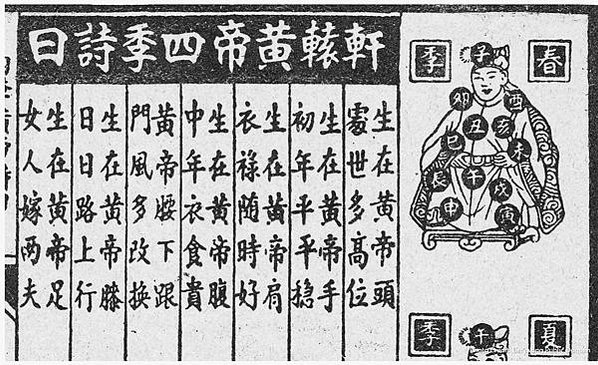 軒轅黃帝四季詩曰
春季
子
卯
酉
丑
亥
巳
未
辰
午
戌
申
寅
夏季
午
生在黃帝頭
處世多高位
生在黃帝手
初年平平穩
生在黃帝肩
衣祿随時好
生在黃帝腹
中年衣食貴
黃帝腰下跟
門風多改換
生在黃帝膝
日日路上行
生在黃帝足
女人嫁兩夫